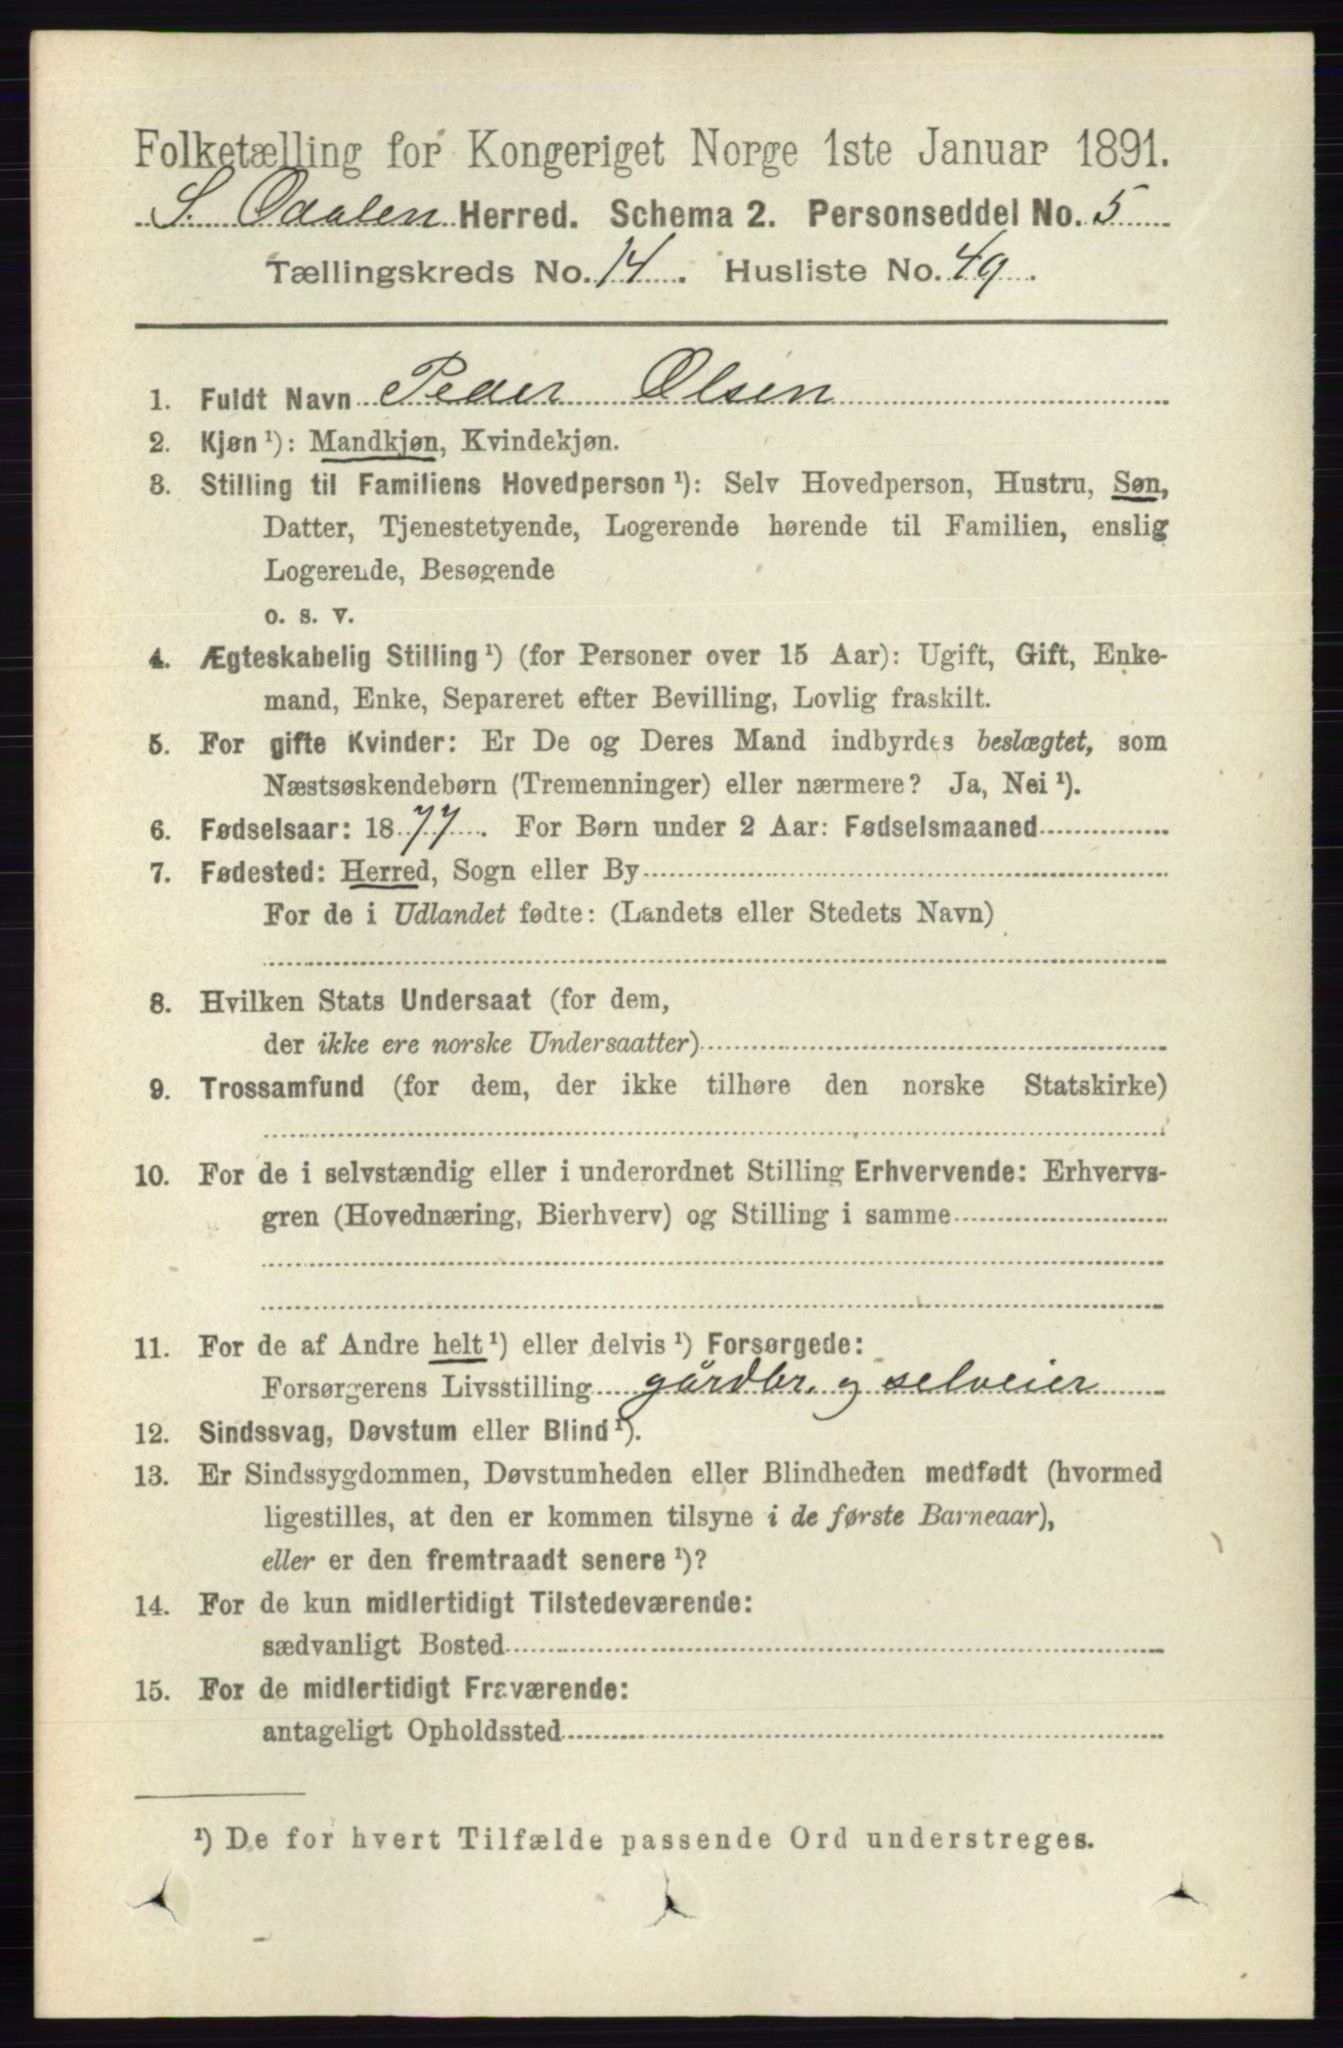 Folketælling for Kongeriget Norge 1ste Januar 1891.
S. Odalen Herred. Schema 2. Personseddel No. 5
Tællingskreds No. 14. Husliste No. 49.
1. Fuldt Navn Peder Olsen
2. Kjøn ¹): Mandkjøn, Kvindekjøn.
3. Stilling til Familiens Hovedperson ¹): Selv Hovedperson, Hustru, Søn,
Datter, Tjenestetyende, Logerende hørende til Familien, enslig
Logerende, Besøgende
o. s. v.
4. Ægteskabelig Stilling ¹) (for Personer over 15 Aar): Ugift, Gift, Enke-
mand, Enke, Separeret efter Bevilling, Lovlig fraskilt.
5. For gifte Kvinder: Er De og Deres Mand indbyrdes beslægtet, som
Næstsøskendebørn (Tremenninger) eller nærmere? Ja, Nei ¹).
6. Fødselsaar: 1877. For Børn under 2 Aar: Fødselsmaaned
7. Fødested: Herred, Sogn eller By
For de i Udlandet fødte: (Landets eller Stedets Navn)
8. Hvilken Stats Undersaat (for dem,
der ikke ere norske Undersaatter)
9. Trossamfund (for dem, der ikke tilhøre den norske Statskirke)
10. For de i selvstændig eller i underordnet Stilling Erhvervende: Erhvervs-
gren (Hovednæring, Bierhverv) og Stilling i samme
11. For de af Andre helt ¹) eller delvis ¹) Forsørgede:
Forsørgerens Livsstilling gårdbr. og selveier
12. Sindssvag, Døvstum eller Blind ¹).
13. Er Sindssygdommen, Døvstumheden eller Blindheden medfødt (hvormed
ligestilles, at den er kommen tilsyne i de første Barneaar),
eller er den fremtraadt senere ¹)?
14. For de kun midlertidigt Tilstedeværende:
sædvanligt Bosted
15. For de midlertidigt Fraværende:
antageligt Opholdssted
¹) De for hvert Tilfælde passende Ord understreges.